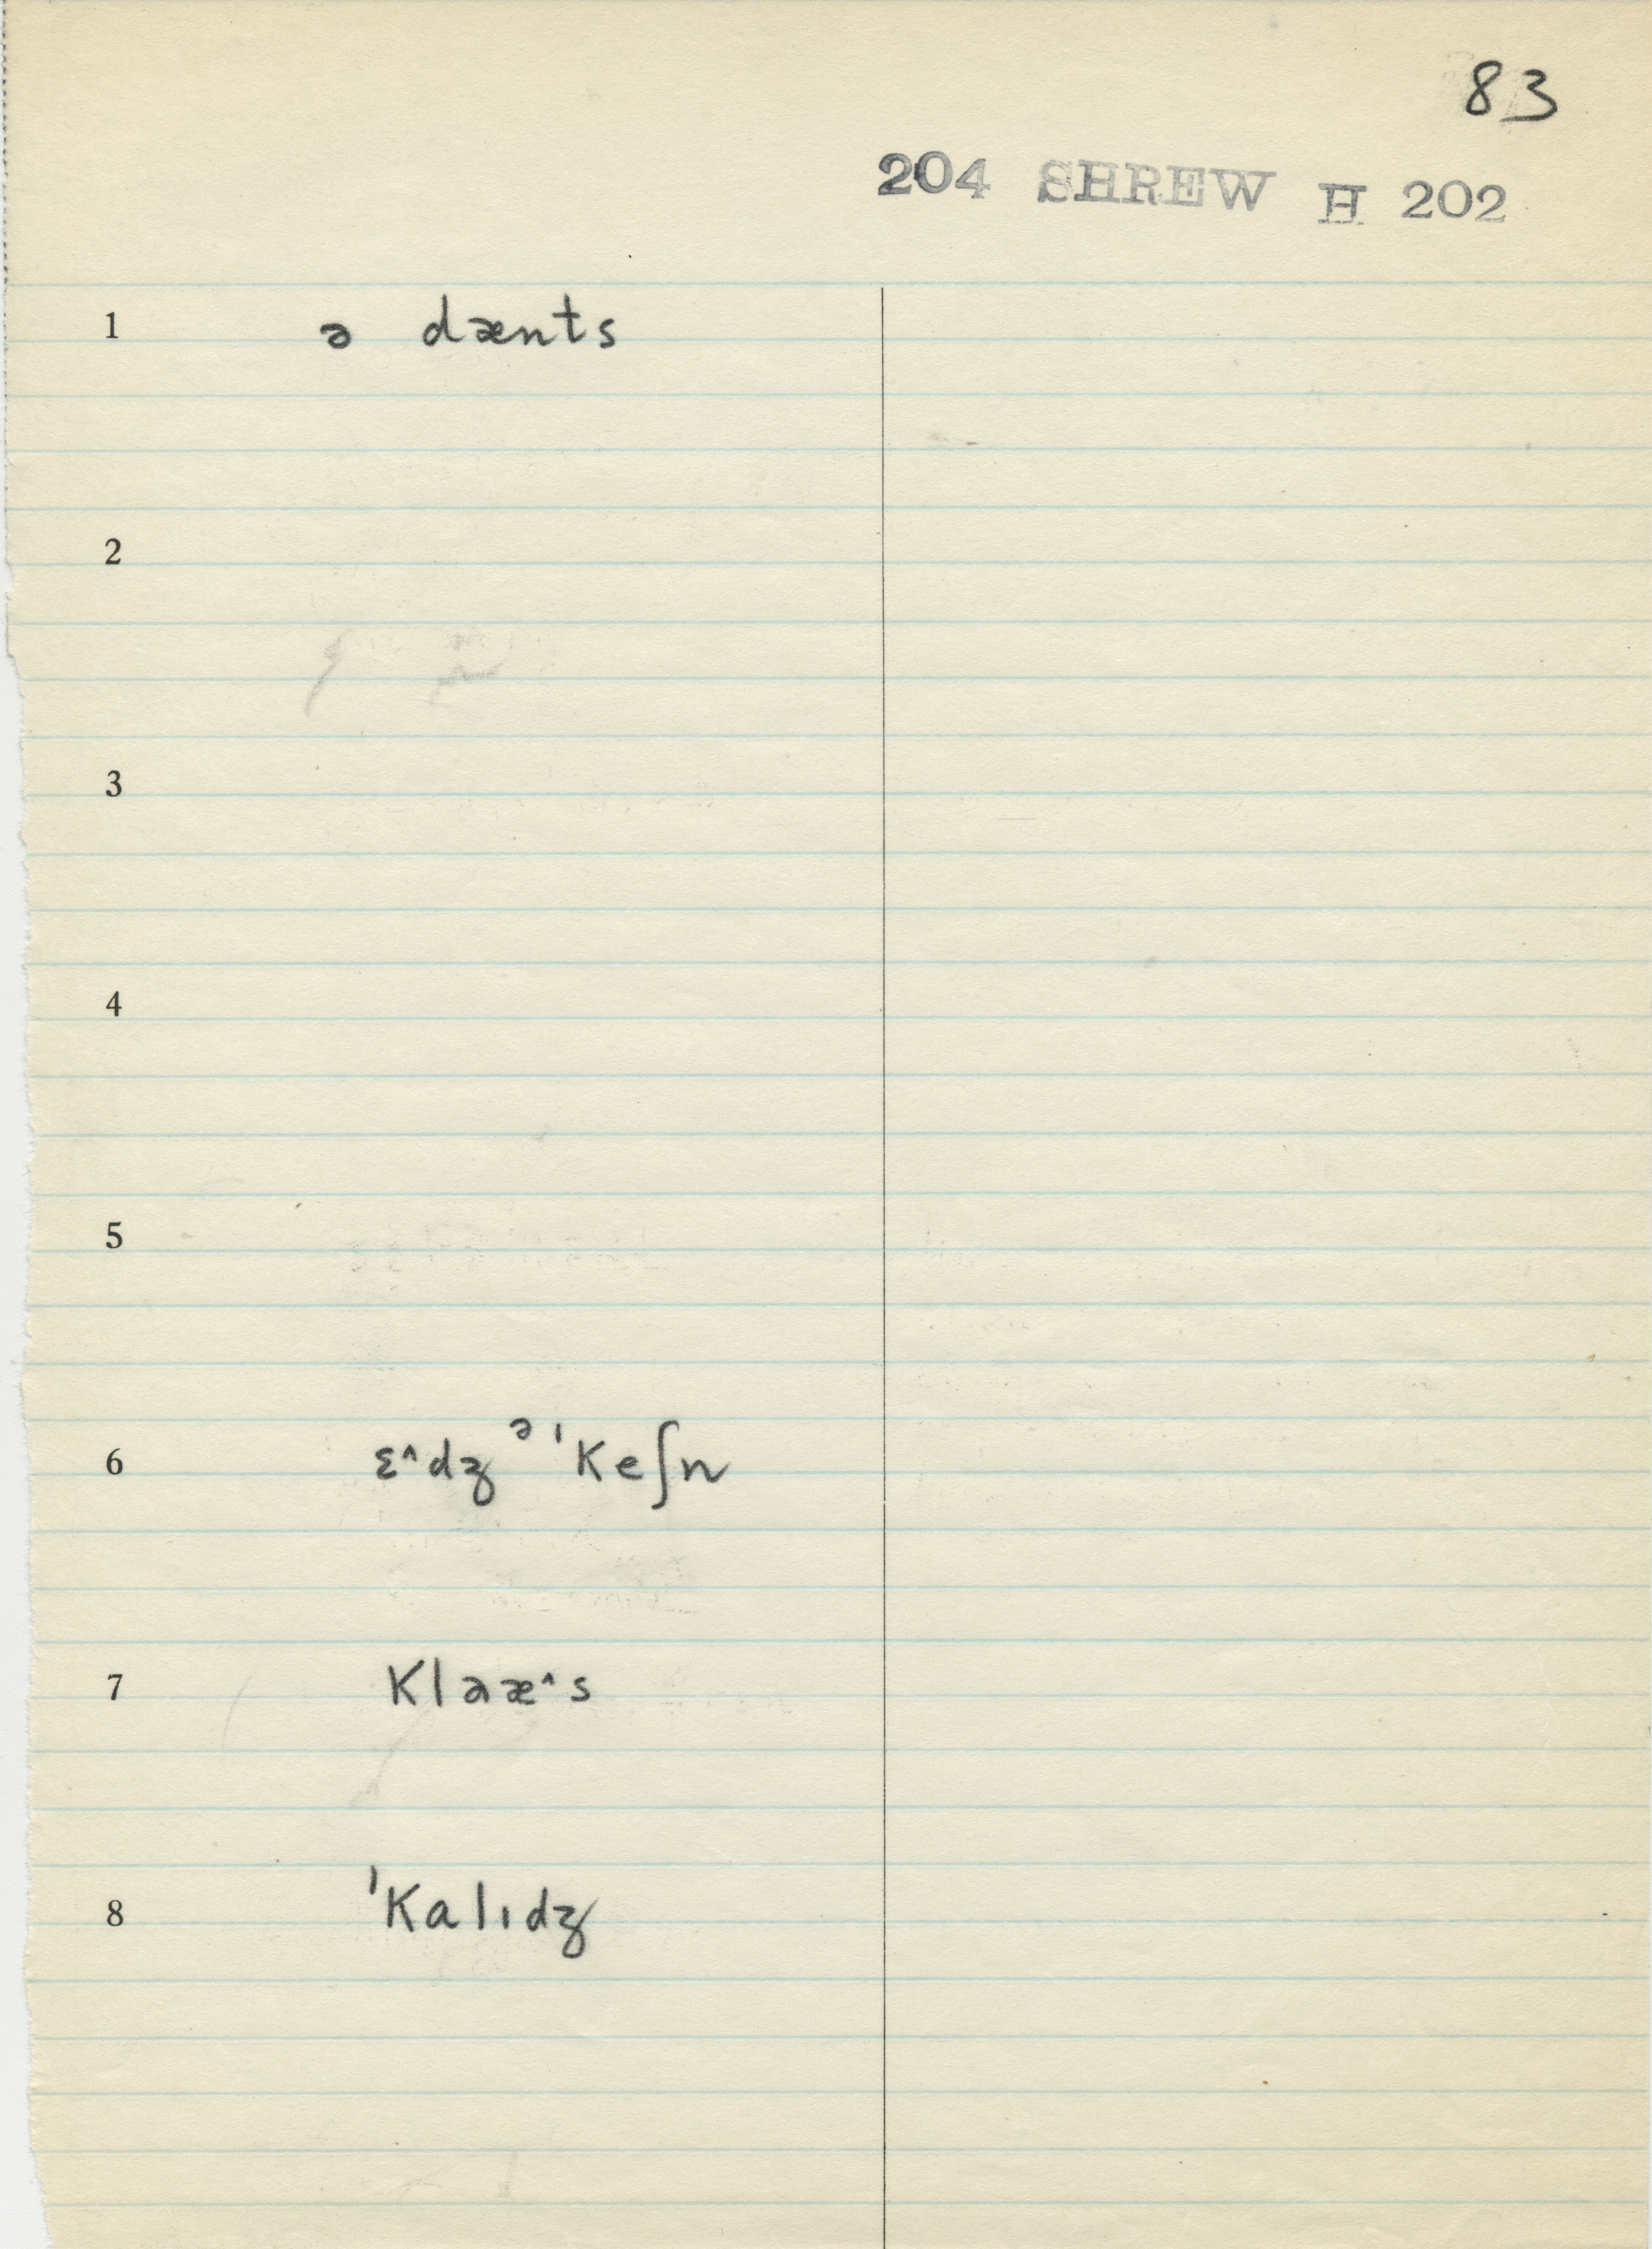 83
204 SHREW H 202
1 ə dænts
2
3
4
5
6 ɛ^dʒ ə ˈKeʃn
7 Klaæ^s
8 ˈKalɪdʒ